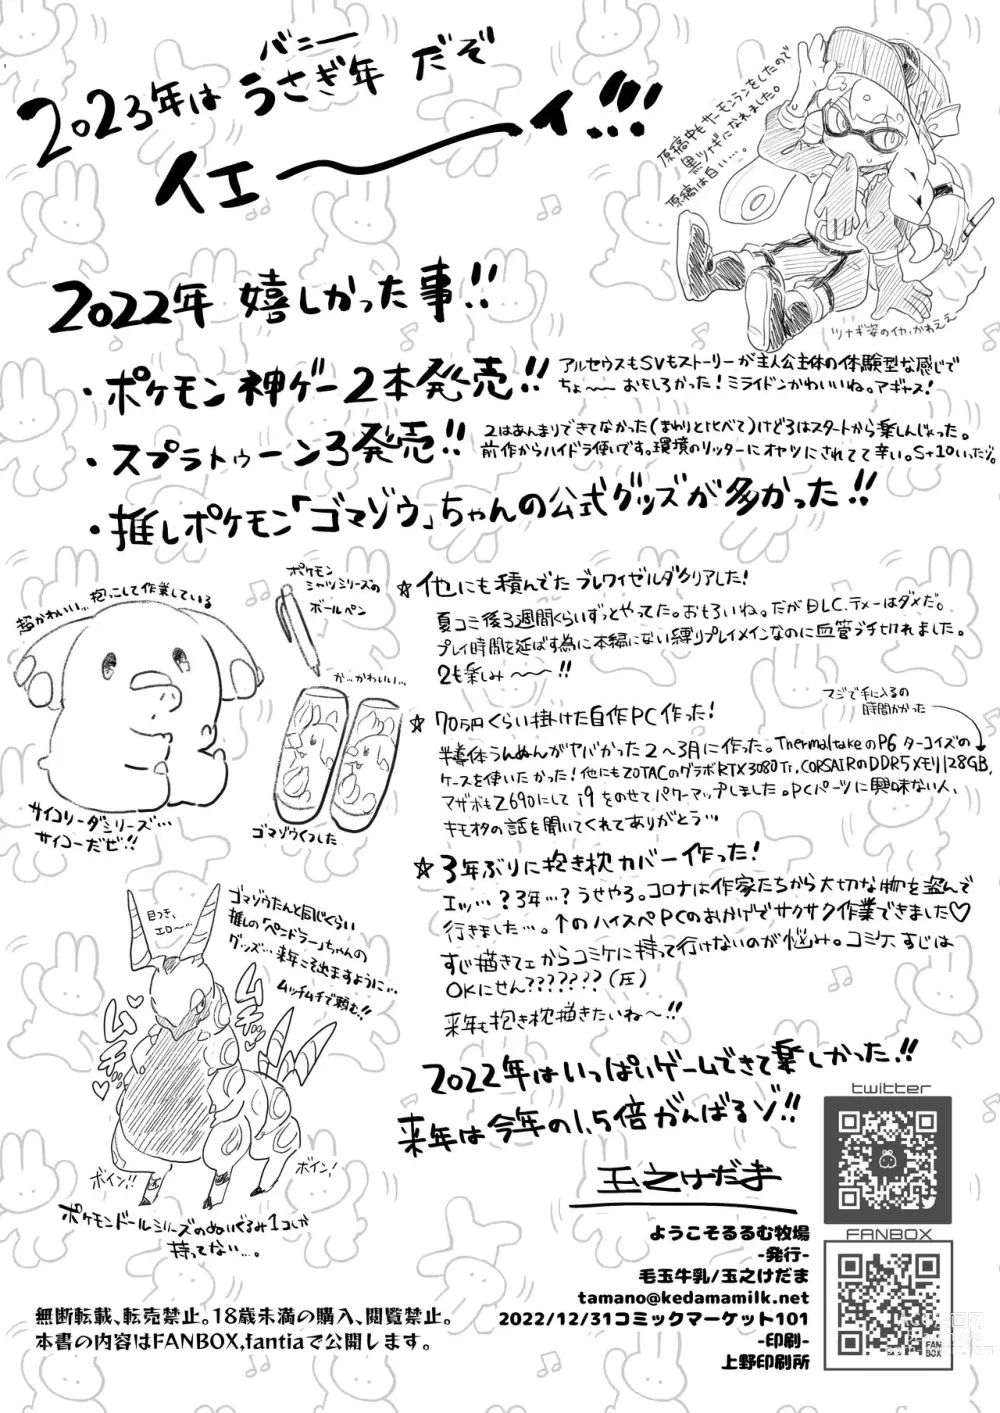 2023年はうさぎ年だぞ
バニー
イエーーイ!!!
原稿中もサーモンランをしたので
黒ツナギになれました。
原稿は白い…。
ツナギ姿のイカ、かわええ
2022年 嬉しかった事!!
・ポケモン神ゲー2本発売!!
アルセウスもSVもストーリーが主人公主体の体験型な感じで
ちょ〜〜おもしろかった!ミライドンかわいいね。アギャス!
・スプラトゥーン3発売!!
2はあんまりできてなかった(まわりと比べて)けど3はスタートから楽しんじゃった。
前作からハイドラ使いです。環境のリッターにオヤツにされてて辛い。S+10いったゾ。
・推しポケモン「ゴマゾウ」ちゃんの公式グッズが多かった!!
超かわいい…抱っこして作業している
サイコソーダシリーズ…
サイコーだぜ!!
ポケモン
シャツシリーズの
ボールペン
か…かわいい…
ゴマゾウくつした
☆他にも積んでたブレワイゼルダクリアした!
夏コミ後3週間くらいずっとやってた。おもろいね。だがDLC、テメーはダメだ。
プレイ時間を延ばす為に本編にない縛りプレイメインなのに血管ブチ切れました。
2も楽しみ〜〜!!
☆70万円くらい掛けた自作PC作った!
マジで手に入るの
時間かかった
半導体うんぬんがヤバかった2〜3月に作った。ThermaltakeのP6 ターコイズの
ケースを使いたかった!他にもZOTACのグラボRTX3080Ti、CORSAIRのDDR5メモリ128GB、
マザボもZ690にして i9をのせてパワーマップしました。PCパーツに興味ない人、
キモオタの話を聞いてくれてありがとう…
☆3年ぶりに抱き枕カバー作った!
エッ…?3年…?うせやろ。コロナは作家たちから大切な物を盗んで
行きました…。↑のハイスペPCのおかげでサクサク作業できました♡
すじ描きてェからコミケに持って行けないのが悩み。コミケ、すじは
OKにせん???????(圧)
来年も抱き枕描きたいね〜!!
ゴマゾウたんと同じくらい
推しの「ペンドラー」ちゃんの
グッズ…来年こそ出ますように…
ムッチムチで頼む!!
目つき、
エロ〜…
ムチ
ムチ…♡
ボイン!!
ボイン!
ポケモンドールシリーズのぬいぐるみ1コしか
持ってない…。
2022年はいっぱいゲームできて楽しかった!!
来年は今年の1.5倍がんばるゾ!!
玉之けだま
twitter
FANBOX
ようこそるるむ牧場
-発行-
毛玉牛乳/玉之けだま
tamano@kedamamilk.net
2022/12/31コミックマーケット101
-印刷-
上野印刷所
FAN
BOX
無断転載、転売禁止。18歳未満の購入、閲覧禁止。
本書の内容はFANBOX,fantiaで公開します。